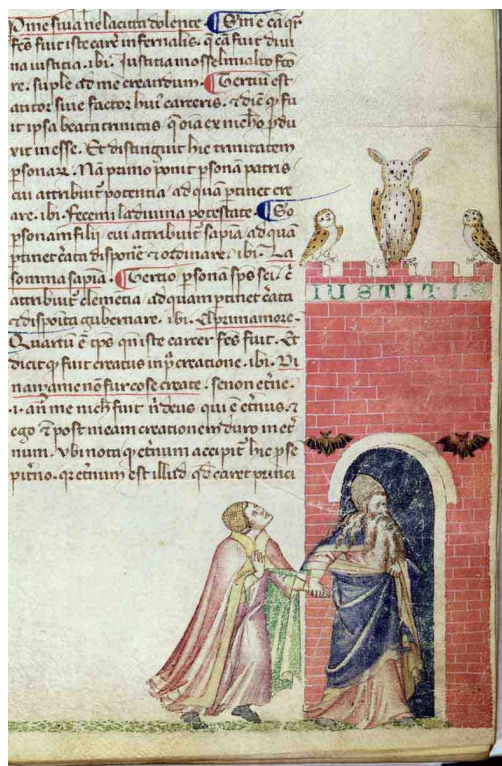 P me si va ne la citta dolente. Scm ē cā qr̄
fcs̄ fuit iste carc̄ infernalis. q̄ cā fuit divi
na iustitia. ibi. Iustitia mosse lmio alto fcō
re. suple ad me creandum. Tertiū est
autor sive factor huiꝰ carceris. ⁊ dicit ꝙ fu
it ipsa beata trinitas q̄ oīa ex nicho ꝓdu
xit in esse. Et distinguit hic trinitatem
ꝑsonaꝝ. Nā primo ponit ꝑsonā patris
cui attribuit̄ potentia ad quā ꝑtinet cre
are. ibi. Fecemi la divina potestate. So
ꝑsonam filii cui attribuit̄ sapīa ad quā
ꝑtinet cāta disponē ⁊ ordinare. ibi. La
somma sapīa. Tertio ꝑsonā sps̄ sci. c̄
attribuit̄ clemētia ad quam ꝑtinet cāta
⁊ disposita gubernare. ibi. El primo amore.
Quartū ē tps̄ qn̄ iste carcer fcs̄ fuit. Et
dicit ꝙ fuit creatus in pⁿ creatione. ibi. Di
nançi a me nō fur cose create. se non et̄ne.
.i. an̄ me nich fuit n̄ deus qui ē et̄nus. ⁊
ego ⁊ post meam creationem duro in et̄
num. Ubi nota ꝙ et̄num accipit̄ hic ꝓ sē
pit̄no. qr et̄num est illud qd̄ caret princi
IUSTITIA